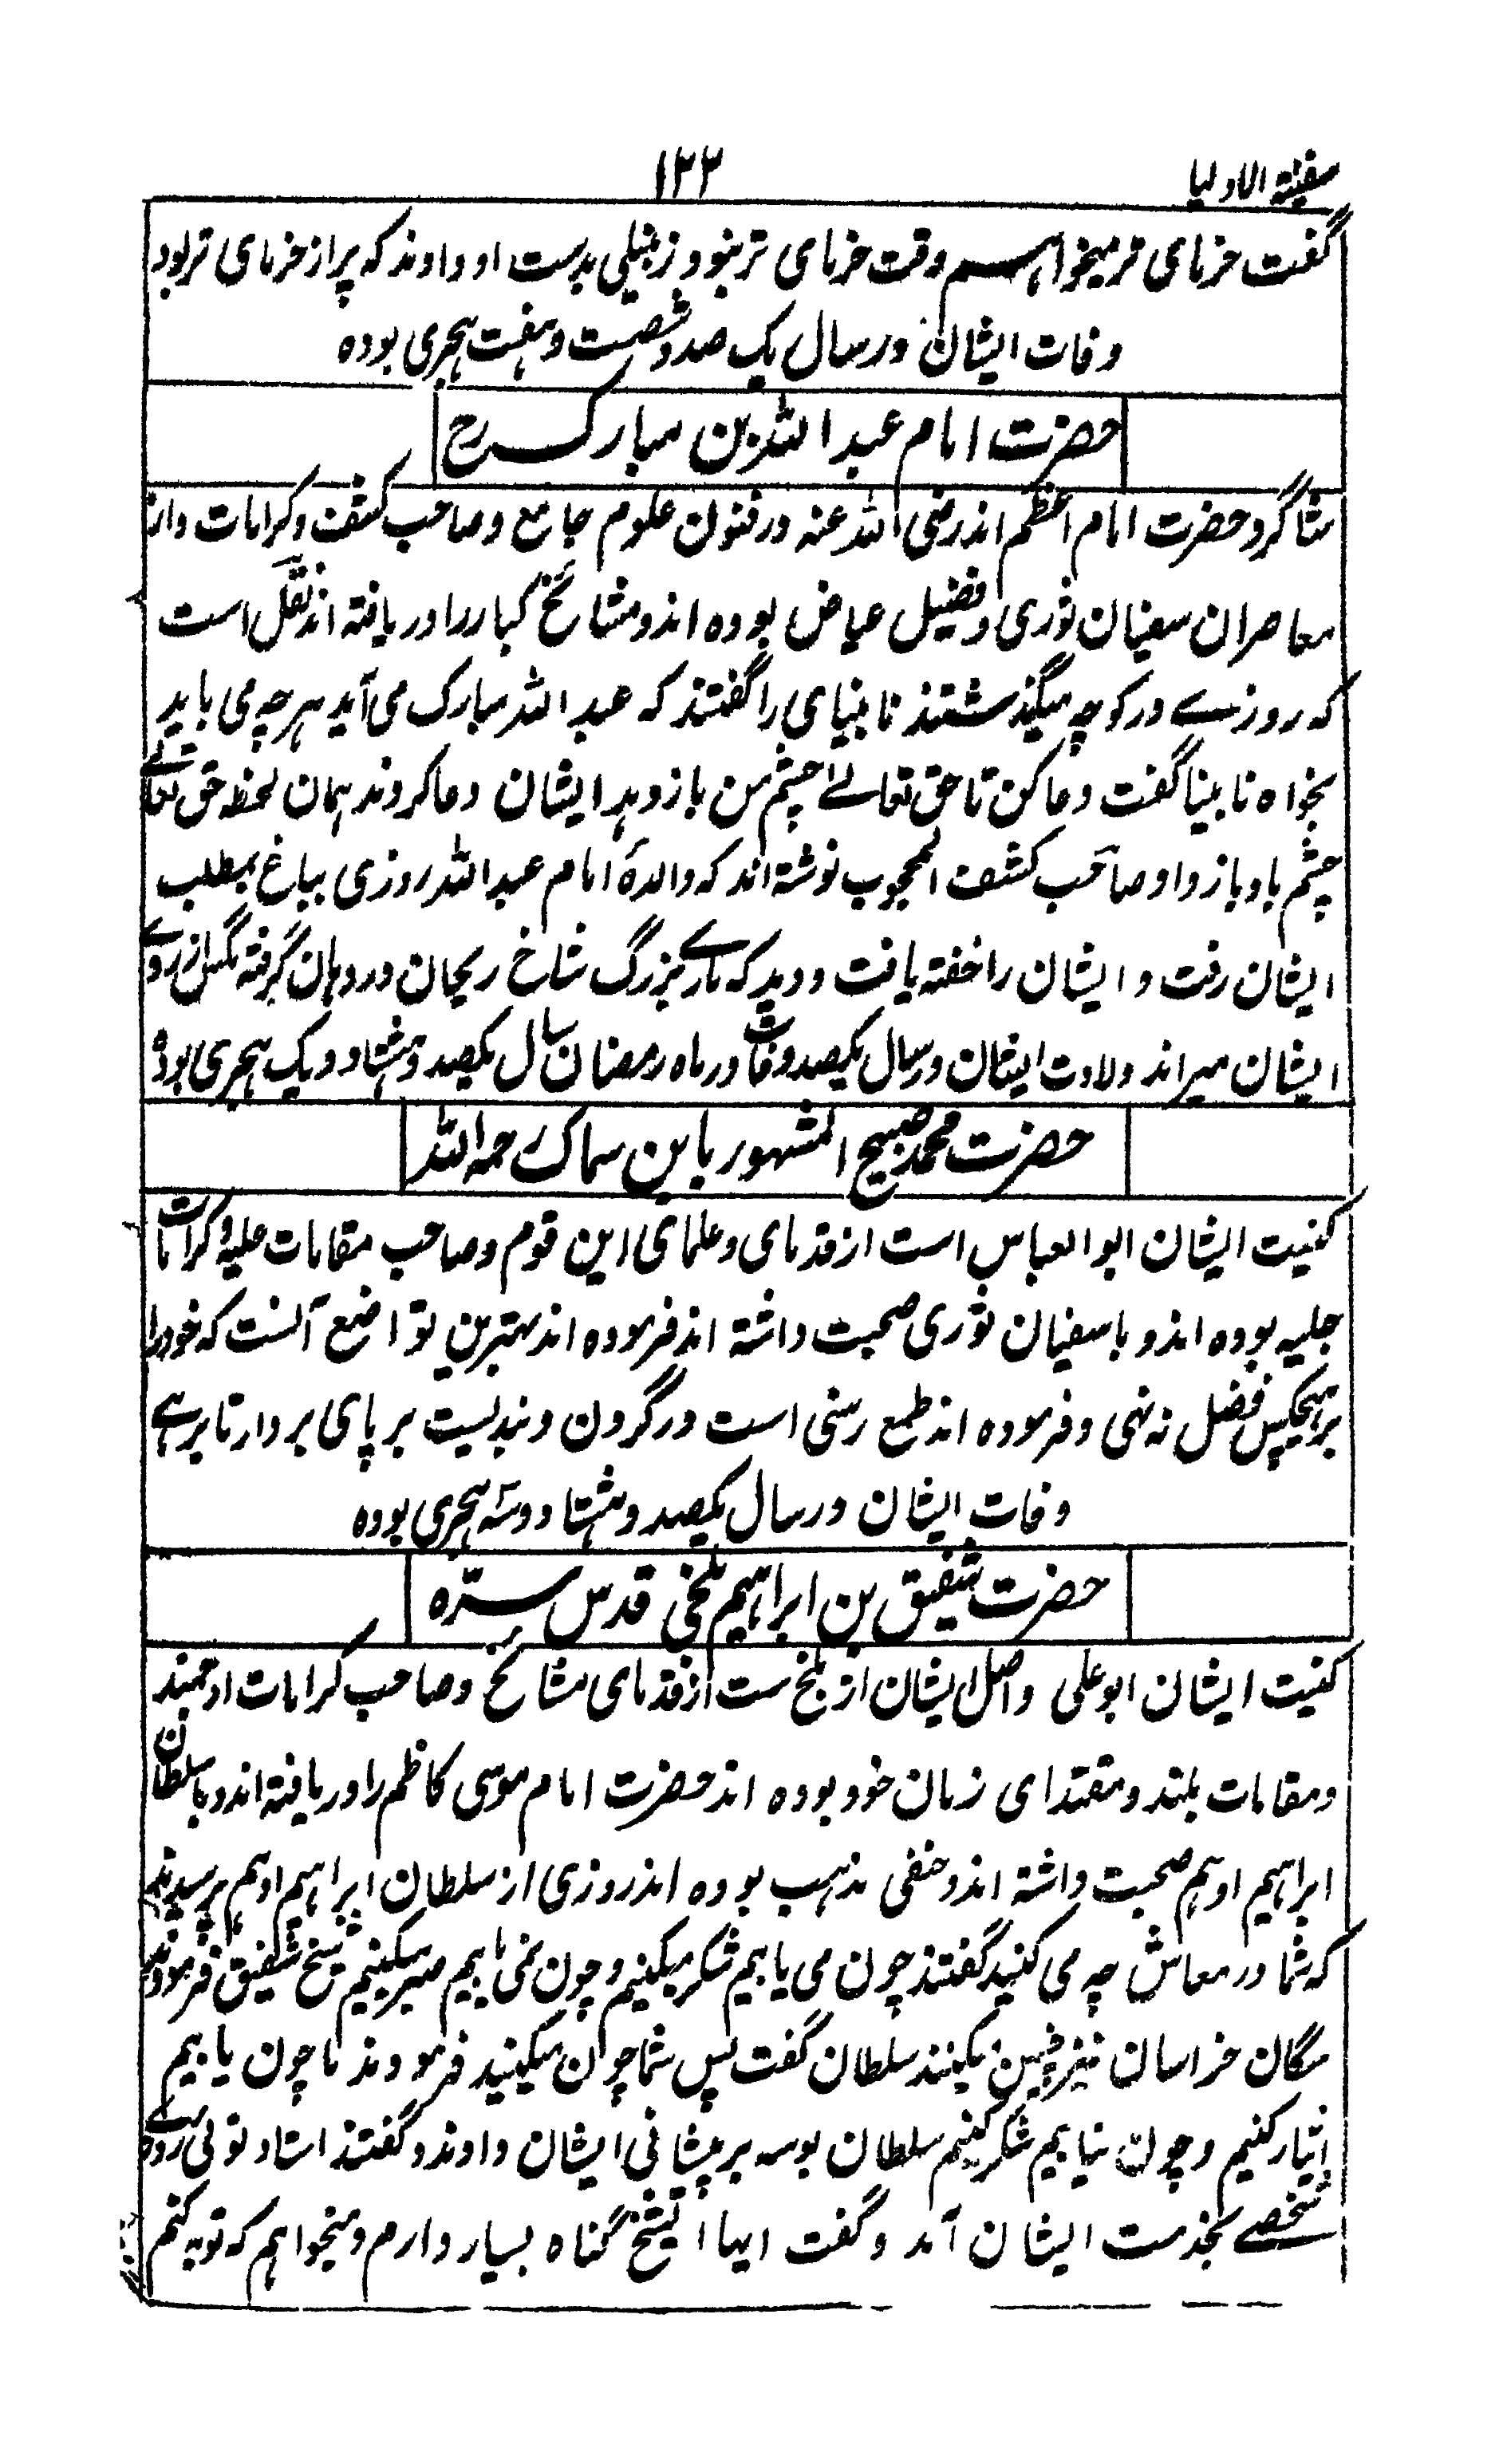 سفینة الاولیا
۱۲۲
گفت خرمای تر میخواهم وقت خرمای تر نبود زنبیلی بدست او دادند که پر از خرمای تر بود
وفات ایشان در سال یک صد و شصت و هفت هجری بوده
حضرت امام عبد اللّٰه بن مبارک رح
شاگرد حضرت امام اعظم اند رضی اللّٰه عنه در فنون علوم جامع و صاحب کشف و کرامات و از
معاصران سفیان ثوری و فضیل عیاض بوده اند و مشائخ کبار را دریافته اند نقل است
که روزے در کوچه میگذشتند نابینای را گفتند که عبد اللّٰه مبارک می آید هر چه می باید
بخواه نابینا گفت دعا کن تا حق تعالےٰ چشم من باز دهد ایشان دعا کردند همان لحظه حق تعالےٰ
چشم باو باز داد و صاحب کشف المحجوب نوشته اند که والدهٔ امام عبد اللّٰه روزی بباغ بطلب
ایشان رفت و ایشان را خفته یافت و دید که مارے بزرگ شاخ ریحان در دهان گرفته مگس از روے
ایشان میراند ولادت ایشان در سال یکصد وفات در ماه رمضان سال یکصد و هشتاد و یک هجری بوده
حضرت محمد صبیح المشهور بابن سماک رحمه اللّٰه
کنیت ایشان ابو العباس است از قدمای و علمای این قوم و صاحب مقامات علیه و کرامات
جلیه بوده اند و با سفیان ثوری صحبت داشته اند فرموده اند بهترین تواضع آنست که خود را
بر هیچکس فضل نه نهی و فرموده اند طمع رسنی است در گردن و بندیست بر پای بردار تا برهے
وفات ایشان در سال یکصد و هشتاد و سه هجری بوده
حضرت شفیق بن ابراهیم بلخی قدس سرّه
کنیت ایشان ابو علی و اصل ایشان از بلخ ست از قدمای مشائخ و صاحب کرامات ارجمند
و مقامات بلند و مقتدای زمان خود بوده اند حضرت امام موسی کاظم را دریافته اند و با سلطان
ابراهیم ادهم صحبت داشته اند و حنفی مذهب بوده اند روزی از سلطان ابراهیم ادهم پرسیدند
که شما در معاش چه می کنید گفتند چون می یابیم شکر میکنیم و چون نمی یابیم صبر میکنیم شیخ شفیق فرمودند
سگان خراسان نیز چنین میکنند سلطان گفت پس شما چون میکنید فرمودند ما چون یابیم
ایثار کنیم و چون نیابیم شکر کنیم سلطان بوسه بر پیشانی ایشان دادند و گفتند استاد توئی روزے
شخصے بخدمت ایشان آمد و گفت ایها الشیخ گناه بسیار دارم و میخواهم که توبه کنم